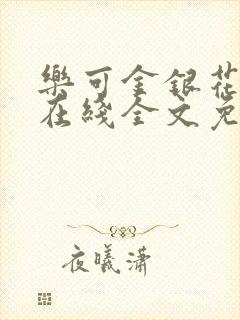 樂可金銀花
在綫全文免
夜曦瀟